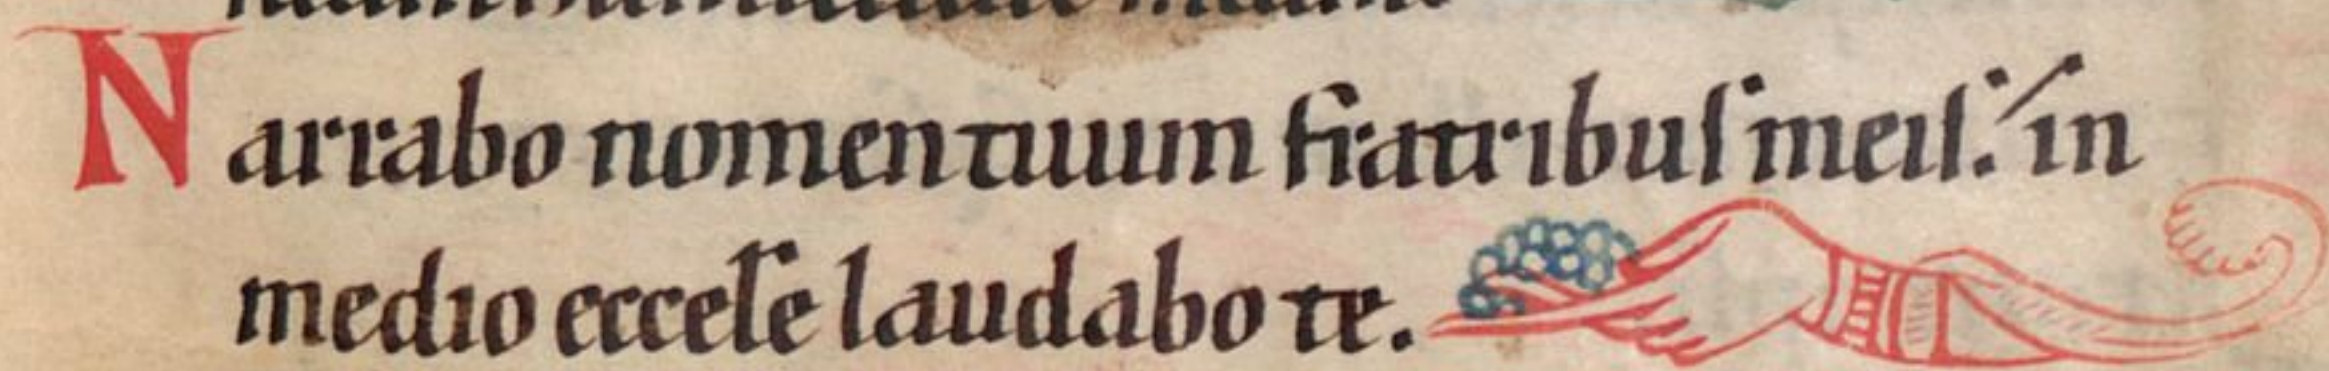 Narrabo nomen tuum fratribuſ meiſ: in
medio eccele laudabo te.